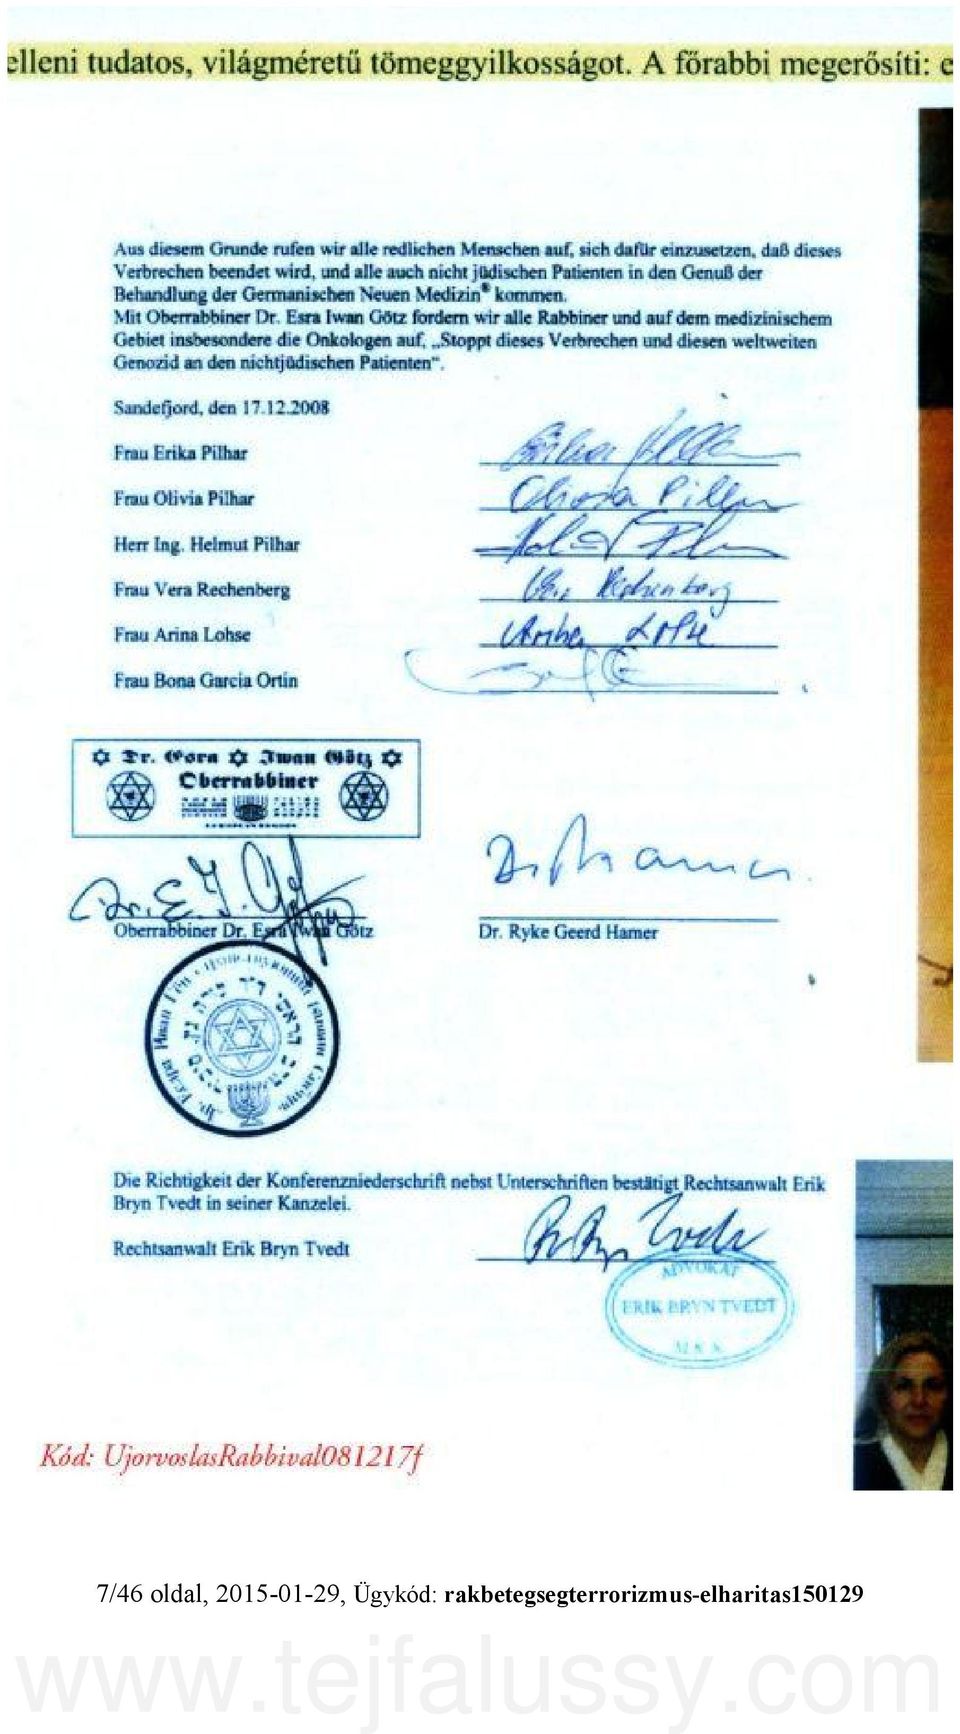 elleni tudatos, világméretű tömeggyilkosságot. A főrabbi megerősíti: e
Aus diesem Grunde rufen wir alle redlichen Menschen auf, sich dafür einzusetzen, daß dieses
Verbrechen beendet wird, und alle auch nicht jüdischen Patienten in den Genuß der
Behandlung der Germanischen Neuen Medizin® kommen.
Mit Oberrabbiner Dr. Esra Iwan Götz fordern wir alle Rabbiner und auf dem medizinischem
Gebiet insbesondere die Onkologen auf, „Stoppt dieses Verbrechen und diesen weltweiten
Genozid an den nichtjüdischen Patienten“.
Sandefjord, den 17.12.2008
Frau Erika Pilhar
Frau Olivia Pilhar Olivia Pilhar
Herr Ing. Helmut Pilhar
Frau Vera Rechenberg Vera Rechenberg
Frau Arina Lohse Lohse
Frau Bona Garcia Ortin
Dr. Esra Iwan Götz
Oberrabbiner
Dr. E. I. Götz Dr. Hamer
Oberrabbiner Dr. Esra Iwan Götz Dr. Ryke Geerd Hamer
Die Richtigkeit der Konferenzniederschrift nebst Unterschriften bestätigt Rechtsanwalt Erik
Bryn Tvedt in seiner Kanzelei.
Rechtsanwalt Erik Bryn Tvedt Tvedt
ADVOKAT
ERIK BRYN TVEDT
Kód: UjorvoslasRabbival081217f
7/46 oldal, 2015-01-29, Ügykód: rakbetegsegterrorizmus-elharitas150129
www.tejfalussy.com